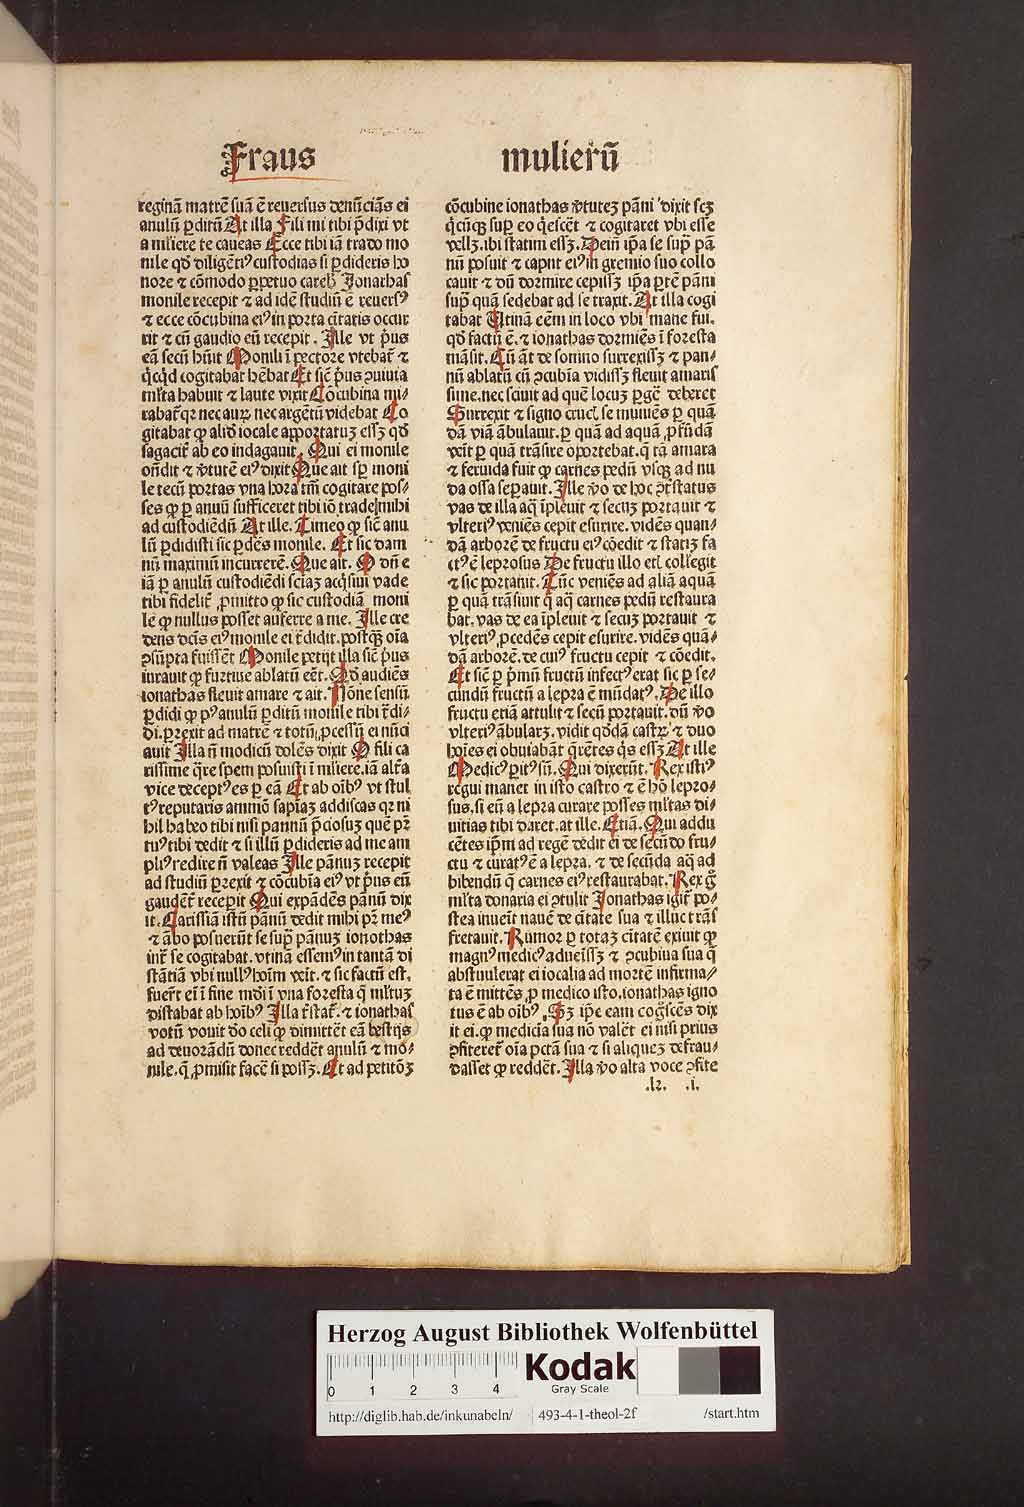 Fraus
mulierū
reginā matrē suā ē reuersus denūciās ei
anulū ꝑditū At illa Fili mi tibi p̄dixi vt
a mliere te caueas Ecce tibi iā trado mo
nile qd̄ diligēti⁹ custodias si ꝑdideris ho
nore ⁊ cōmodo ꝑpetuo careb̄ Jonathas
monile recepit ⁊ ad idē studiū ē reuers⁹
⁊ ecce cōcubina ei⁹ in porta ciu̅tatis occur
rit ⁊ cū gaudio eū recepit. Ille vt p̄us
eā secū hūit Monili ī pectore vtebat̄ ⁊
q̇cq̇d cogitabat hēbat Et sic̄ p̄us ↄuiuia
ml̄ta habuit ⁊ laute vixit Cōcubina mi-
rabat̄ qꝛ nec auꝝ nec argētū videbat Co
gitabat ꝙ aliđ iocale apportatuꝫ essꝫ qd̄
sagacit̄ ab eo indagauit. Qui ei monile
on̄dit ⁊ v̄tutē ei⁹ dixit Que ait sp̄ moni
le tecū portas vna hora tm̄ cogitare pos-
ses ꝙ ꝑ anuū sufficeret tibi iō trade mihi
ad custodiēdū At ille. Timeo ꝙ sic̄ anu
lū ꝑdidisti sic ꝑdes monile. Et sic dam
nū maximū incurrerē. Que ait. O dn̄e
iā ꝑ anulū custodiēdi sciaꝫ acq̇siui vade
tibi fidelit̄ ꝓmitto ꝙ sic custodiā moni
le ꝙ nullus posset auferre a me. Ille cre
dens dc̄is ei⁹ monile ei t̄didit. postq̄ꝫ oīa
ↄsūpta fuissēt Monile petijt illa sic̄ p̄us
iurauit ꝙ furtiue ablatū eēt. Qd̄ audiēs
ionathas fleuit amare ⁊ ait. Nōne sensū
ꝑdidi ꝙ p⁹ anulū ꝑditū monile tibi t̄di-
di. ꝑrexit ad matrē ⁊ totū ꝓcessū ei nūci
auit Illa n̄ modicū dolēs dixit O fili ca
rissime q̄re spem posuisti ī mliere. iā alt̄a
vice decept⁹ es ꝑ eā Et ab oīb⁹ vt stul
t⁹ reputaris ammō sapiaꝫ addiscas qꝛ ni
hil habeo tibi nisi pannū p̄ciosuꝫ quē pr̄
tu⁹ tibi dedit ⁊ si illū ꝑdideris ad me am
pli⁹ redire n̄ valeas Ille pānuꝫ recepit
ad studiū ꝑrexit ⁊ cōcubīa ei⁹ vt p̄us eū
gaudēt̄ recepit Qui expādēs pānū dix
it. Carissiā istū pānū dedit mihi pr̄ me⁹
⁊ ābo posuerūt se sup̄ pānuꝫ ionathas
int̄ se cogitabat. vtinā essem⁹ in tantā di
stātiā vbi null⁹ hoīm veīt. ⁊ sic factū est.
fuert̄ ei ī fine mūdi ī vna foresta q̄ ml̄tuꝫ
distabat ab hoīb⁹ Illa t̄stat̄. ⁊ ionathas
votū vouit deo celi ꝙ dimittēt eā bestijs
ad deuorādū donec reddēt anulū ⁊ mo-
nile. q̄ ꝓmisit facē si possꝫ. Et ad petitōꝫ
cōcubine ionathas v̄tuteꝫ pāni dixit scꝫ
q̇cūqꝫ sup̄ eo q̇escēt ⁊ cogitaret vbi esse
vellꝫ. ibi statim essꝫ. Dein ip̄a se sup̄ pā
nū posuit ⁊ caput ei⁹ in gremio suo collo
cauit ⁊ dū dormire cepissꝫ ip̄a ꝑtē pāni
sup̄ quā sedebat ad se traxit. At illa cogi
tabat Utinā eēm in loco vbi mane fui.
qd̄ factū ē. ⁊ ionathas dormiēs ī foresta
māsit. Cū āt de somno surrexissꝫ ⁊ pan-
nū ablatū cū ↄcubīa vidissꝫ fleuit amaris
sime. nec sciuit ad quē locuꝫ ꝑgē deberet
Surrexit ⁊ signo cruc̄ se muniēs ꝑ quā
dā viā ābulauit. ꝑ quā ad aquā ꝓfūdā
veīt ꝑ quā trāsire oportebat. q̄ tā amara
⁊ feruida fuit ꝙ carnes pedū vsqꝫ ad nu
da ossa seꝑauit. Ille v̄o de hoc ↄt̄status
vas de illa aq̄ īpleuit ⁊ secuꝫ portauit ⁊
vlteri⁹ veniēs cepit esurire. vidēs quan-
dā arborē de fructu ei⁹ cōedit ⁊ statiꝫ fa
ct⁹ ē leprosus De fructu illo etī collegit
⁊ sic portauit. Tūc veniēs ad aliā aquā
ꝑ quā trāsiuit q̄ aq̄ carnes pedū restaura
bat. vas de ea īpleuit ⁊ secuꝫ portauit ⁊
vlteri⁹ ꝓcedēs cepit esurire. vidēs quā-
dā arborē. de cui⁹ fructu cepit ⁊ cōedit.
Et sic̄ ꝑ p̄mū fructū infect⁹ erat sic ꝑ se-
cundū fructū a lepra ē mūdat⁹. De illo
fructu etiā attulit ⁊ secū portauit. dū v̄o
vlteri⁹ ābularꝫ. vidit qd̄dā castꝝ ⁊ duo
hoīes ei obuiabāt q̄rētes q̇s essꝫ At ille
Medic⁹ ꝑit⁹ sū. Qui dixerūt. Rex isti⁹
regui manet in isto castro ⁊ ē hō lepro-
sus. si eū a lepra curare posses ml̄tas di-
uitias tibi daret. at ille. Etiā. Qui addu
cētes ip̄m ad regē dedit ei de secūdo fru-
ctu ⁊ curat⁹ ē a lepra. ⁊ de secūda aq̄ ad
bibendū q̄ carnes ei⁹ restaurabat. Rex g̊
ml̄ta donaria ei ↄtulit Jonathas igit̄ po-
stea inueīt nauē de ciu̅tate sua ⁊ illuc trās
fretauit. Rumor ꝑ totaꝫ ciu̅tatē exiuit ꝙ
magn⁹ medic⁹ adueissꝫ ⁊ ↄcubina sua q̄
abstuulerat ei iocalia ad mortē infirma-
ta ē mittēs ꝓ medico isto. ionathas igno
tus ē ab oīb⁹. Sꝫ ip̄e eam cog̊scēs dix
it ei. ꝙ medicīa sua nō valēt ei nisi prius
ↄfiteret̄ oīa pctā sua ⁊ si aliqueꝫ defrau-
dasset ꝙ reddēt. Illa v̄o alta voce ↄfite
.lz. .i.
Herzog August Bibliothek Wolfenbüttel
0 1 2 3 4
Kodak
Gray Scale
http://diglib.hab.de/inkunabeln/ 493-4-1-theol-2f /start.htm